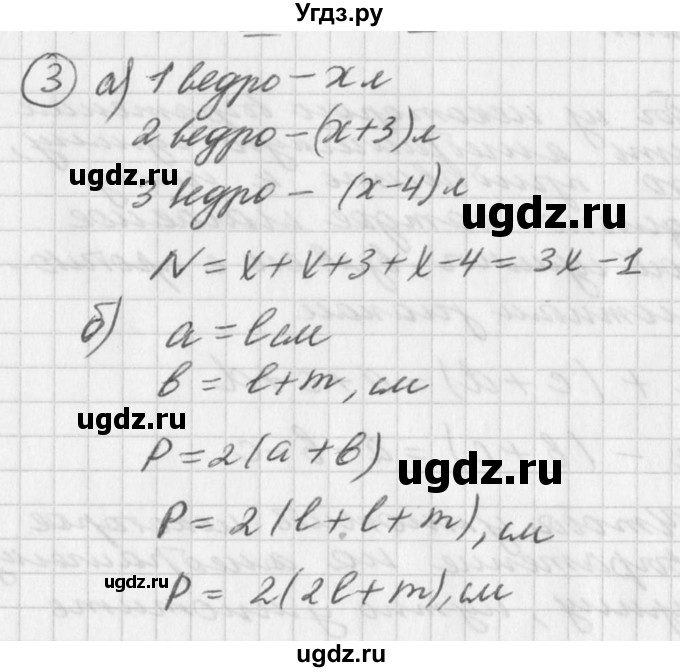 Угдз.ру
3 а) 1 ведро – x л
2 ведро – (x+3) л
ugdz.ru
3 ведро – (x-4) л
ugdz.ru
N = x + x + 3 + x - 4 = 3x - 1
б) a = l см
в = l + m, см
ugdz.ru
P = 2(a + в)
ugdz.ru
P = 2(l + l + m), см
ugdz.ru
P = 2(2l + m), см
ugdz.ru